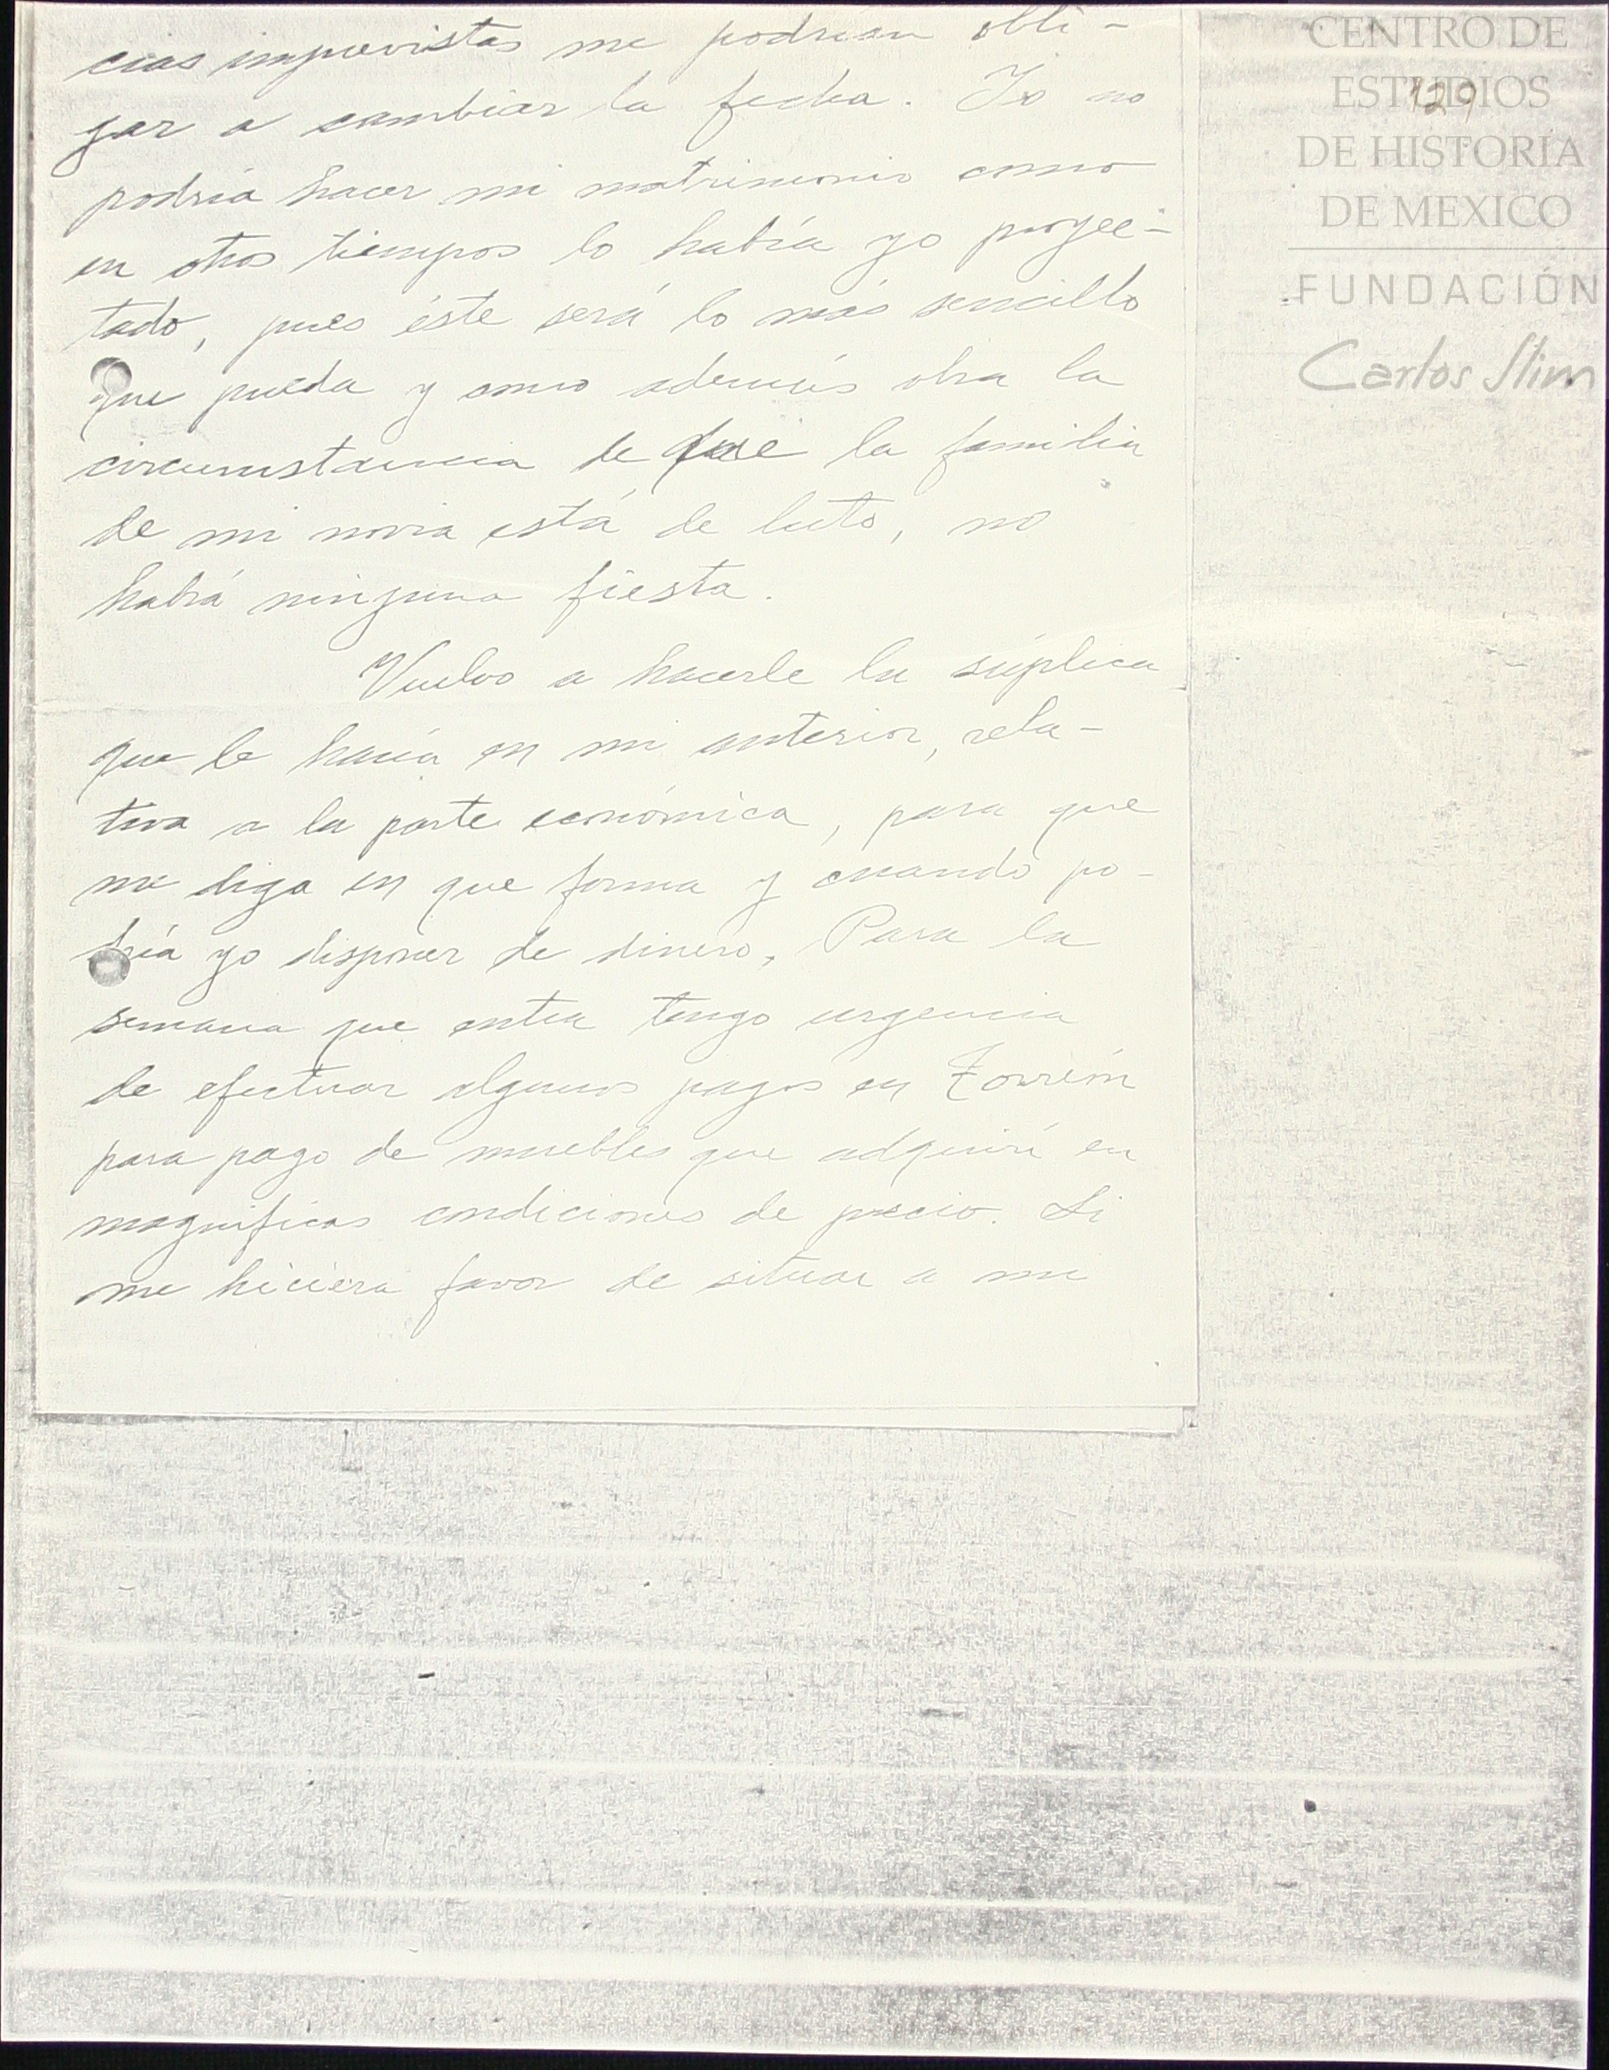 cias imprevistas me podrían obli-
gar a cambiar la fecha. Yo no
podría hacer mi matrimonio como
en otros tiempos lo había yo proyec-
tado, pues éste será lo más sencillo
que pueda y como además obra la
circunstancia de que la familia
de mi novia está de luto, no
habrá ninguna fiesta.
Vuelvo a hacerle la súplica
que le hacía en mi anterior, rela-
tiva a la parte económica, para que
me diga en que forma y cuando po-
dría yo disponer de dinero. Para la
semana que entra tengo urgencia
de efectuar algunos pagos en Torreón
para pago de muebles que adquirí en
magníficas condiciones de precio. Si
me hiciera favor de situar a mi
129
CENTRO DE
ESTUDIOS
DE HISTORIA
DE MEXICO
FUNDACIÓN
Carlos Slim